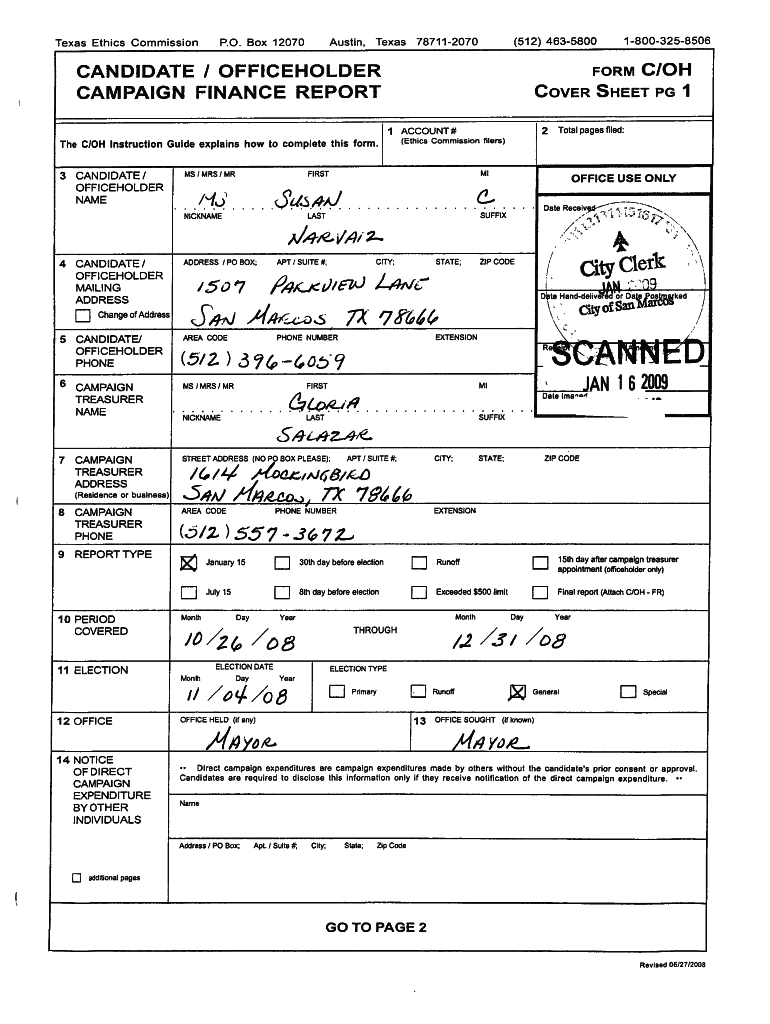 Texas Ethics Commission P.O. Box 12070 Austin, Texas 78711-2070 (512) 463-5800 1-800-325-8506
CANDIDATE / OFFICEHOLDER
CAMPAIGN FINANCE REPORT
FORM C/OH
COVER SHEET PG 1
The C/OH Instruction Guide explains how to complete this form.
1 ACCOUNT #
(Ethics Commission filers)
2 Total pages filed:
3 CANDIDATE /
OFFICEHOLDER
NAME
MS / MRS / MR FIRST MI
MS SUSAN C
NICKNAME LAST SUFFIX
NARVAIZ
OFFICE USE ONLY
Date Received
City Clerk
JAN 2009
Date Hand-delivered or Date Postmarked
City of San Marcos
SCANNED
JAN 16 2009
Date Imaged
4 CANDIDATE /
OFFICEHOLDER
MAILING
ADDRESS
Change of Address
ADDRESS / PO BOX; APT / SUITE #; CITY; STATE; ZIP CODE
1507 PARKVIEW LANE
SAN MARCOS TX 78666
5 CANDIDATE/
OFFICEHOLDER
PHONE
AREA CODE PHONE NUMBER EXTENSION
(512) 396-6059
6 CAMPAIGN
TREASURER
NAME
MS / MRS / MR FIRST MI
GLORIA
NICKNAME LAST SUFFIX
SALAZAR
7 CAMPAIGN
TREASURER
ADDRESS
(Residence or business)
STREET ADDRESS (NO PO BOX PLEASE); APT / SUITE #; CITY; STATE; ZIP CODE
1614 MOCKINGBIRD
SAN MARCOS, TX 78666
8 CAMPAIGN
TREASURER
PHONE
AREA CODE PHONE NUMBER EXTENSION
(512) 557-3672
9 REPORT TYPE
January 15 30th day before election Runoff 15th day after campaign treasurer
appointment (officeholder only)
July 15 8th day before election Exceeded $500 limit Final report (Attach C/OH - FR)
10 PERIOD
COVERED
Month Day Year THROUGH Month Day Year
10/26/08 12/31/08
11 ELECTION
ELECTION DATE
Month Day Year
11/04/08
ELECTION TYPE
Primary Runoff General Special
12 OFFICE
OFFICE HELD (if any)
MAYOR
13 OFFICE SOUGHT (if known)
MAYOR
14 NOTICE
OF DIRECT
CAMPAIGN
EXPENDITURE
BY OTHER
INDIVIDUALS
additional pages
•• Direct campaign expenditures are campaign expenditures made by others without the candidate's prior consent or approval.
Candidates are required to disclose this information only if they receive notification of the direct campaign expenditure. ••
Name
Address / PO Box; Apt. / Suite #; City; State; Zip Code
GO TO PAGE 2
Revised 06/27/2008